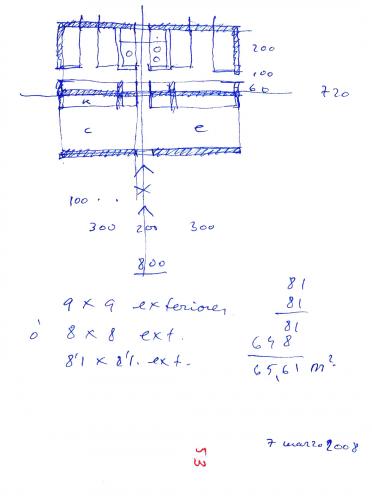 200
100
60
720
K
C
e
100 . .
300 200 300
800
9 x 9 exteriores
ó 8 x 8 ext.
8'1 x 8'1. ext.
81
81
81
648
65,61 m²
7 marzo 2008
53